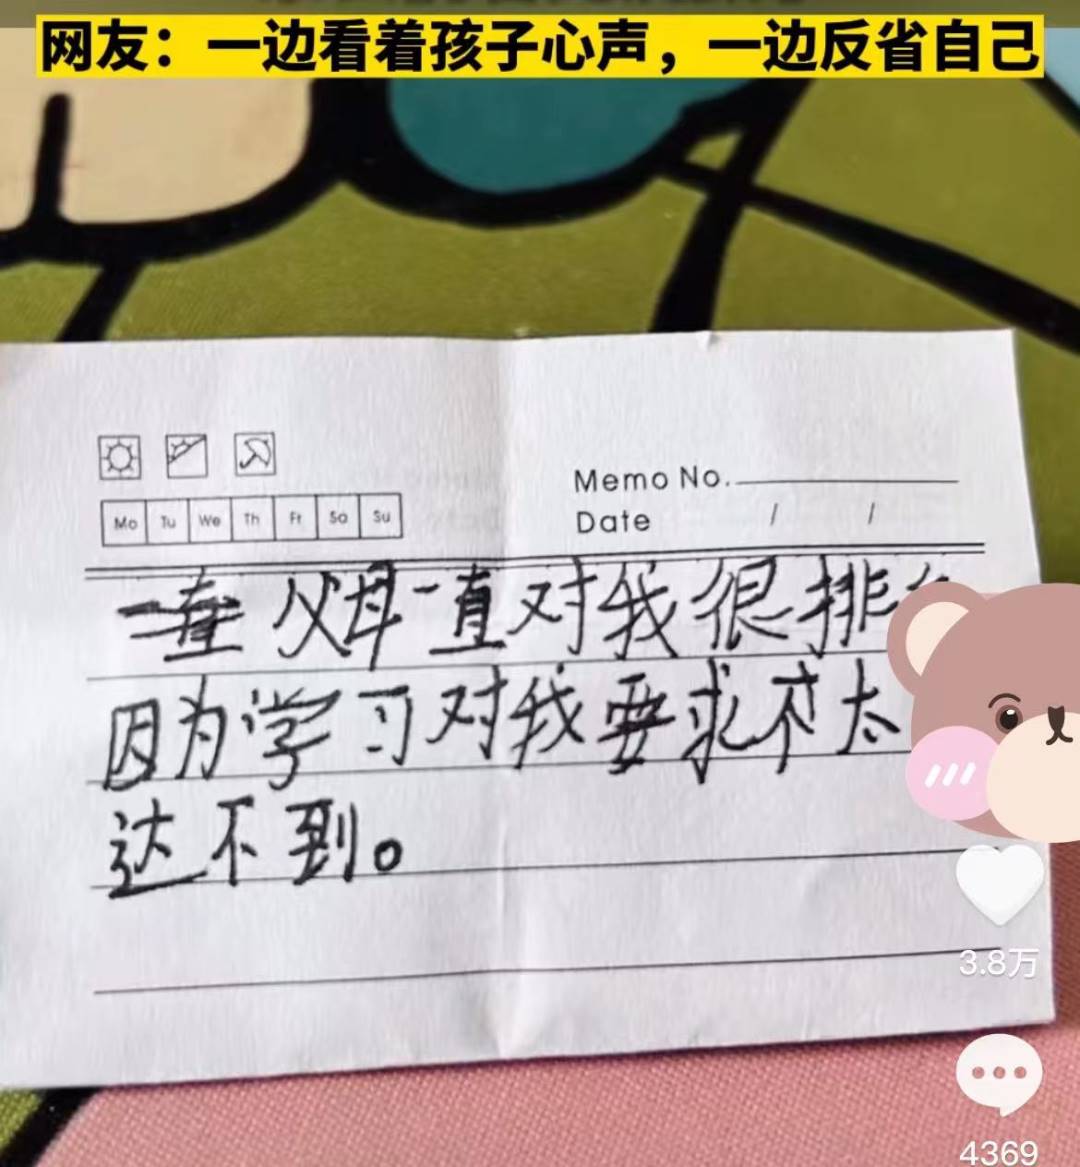 网友：一边看着孩子心声，一边反省自己
Memo No.
Date / /
Mo Tu We Th Fr Sa Su
父母一直对我很排
因为学习对我要求不太
达不到。
3.8万
4369